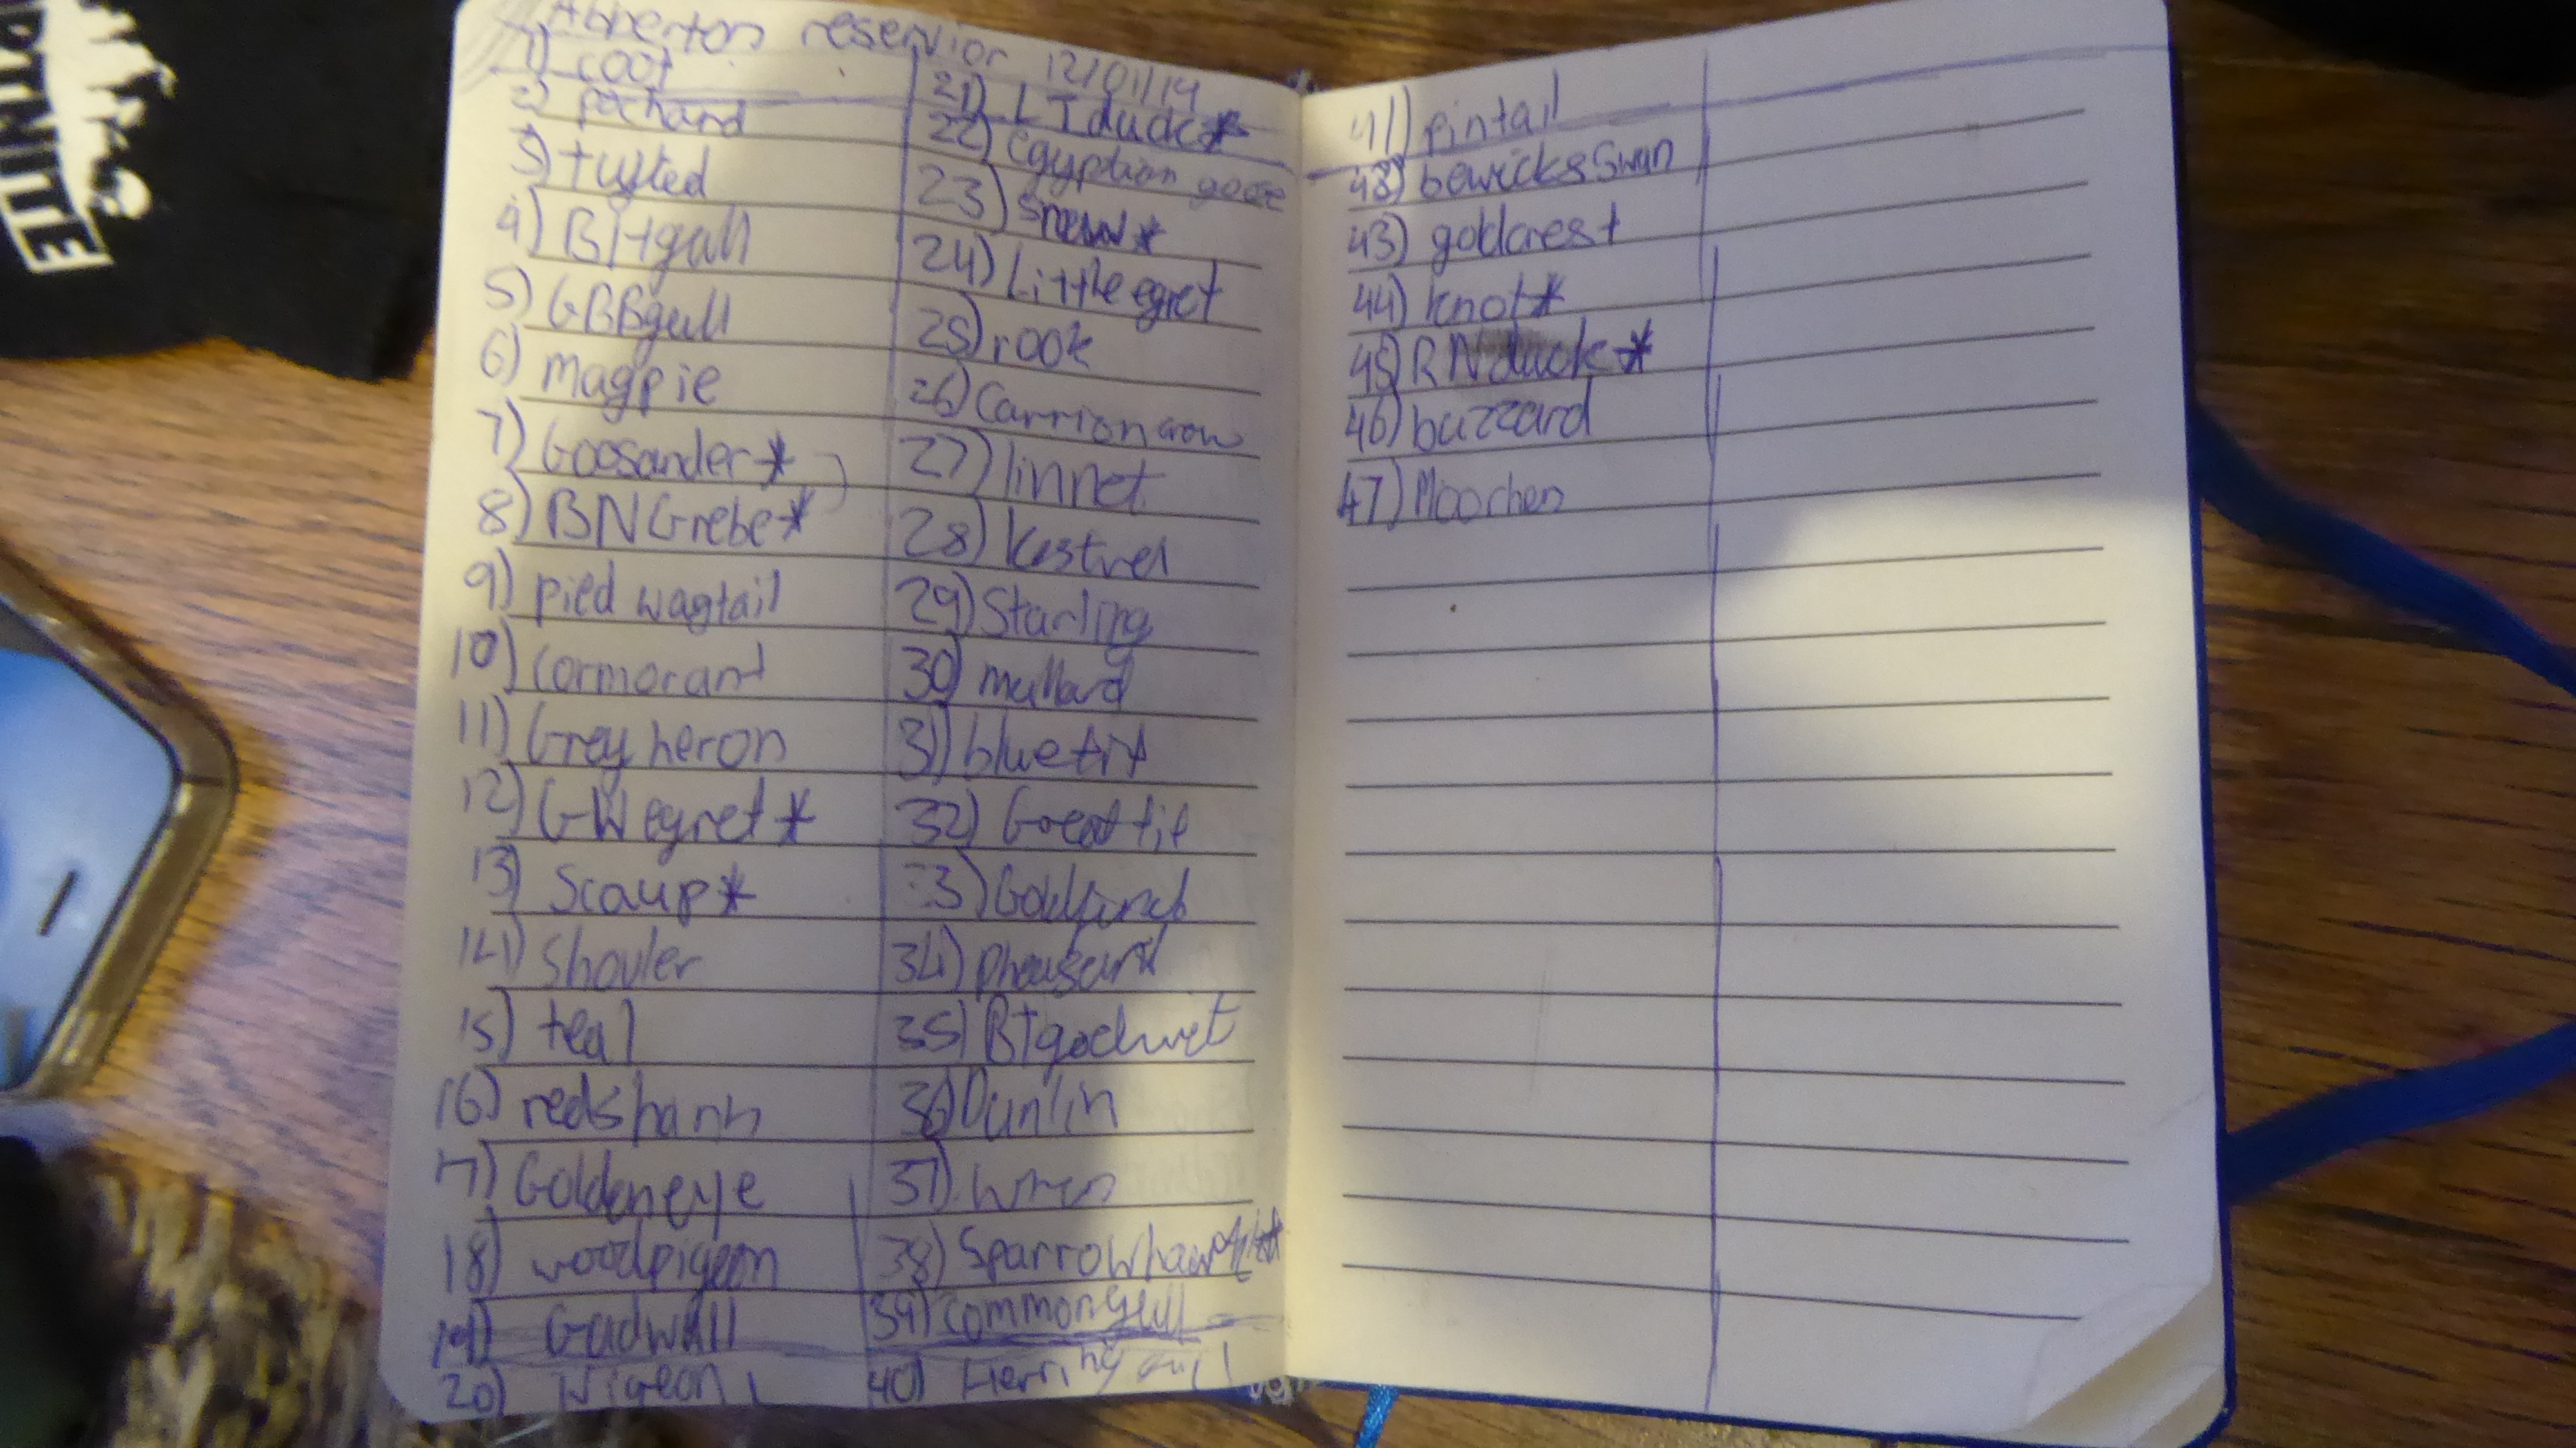 Abberton reservior 12/01/19
1) coot
2) pochard
3) tufted
4) BHgull
5) GBBgull
6) magpie
7) Goosander*
8) BNGrebe*
9) pied wagtail
10) cormorant
11) Grey heron
12) GWegret*
13) Scaup*
14) Shovler
15) teal
16) redshank
17) Goldeneye
18) woodpigeon
19) Gadwall
20) Wigeon
21) LTduck*
22) Egyptian goose
23) Smew*
24) Little egret
25) rook
26) Carrion crow
27) linnet
28) Kestrel
29) Starling
30) mallard
31) blue tit
32) Great tit
33) Goldfinch
34) pheasant
35) BTgodwit
36) Dunlin
37) Wren
38) Sparrowhawk*
39) commongull
40) Herring gull
41) pintail
42) bewicks Swan
43) goldcrest
44) Knot*
45) RNduck*
46) buzzard
47) Moorhen